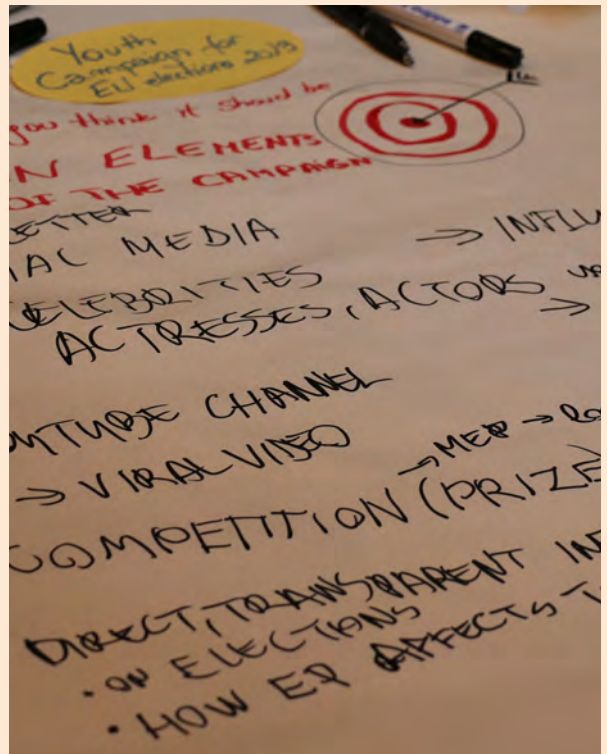 Youth
Campaign for
EU elections 2013
you think it should be
ELEMENTS
OF THE CAMPAIGN
MEDIA
CELEBRITIES
ACTRESSES, ACTORS
CHANNEL
→ VIRAL VIDEO
→ MEP →
COMPETITION (PRIZE
DIRECT, TRANSPARENT
• ON ELECTIONS
• HOW EP AFFECTS